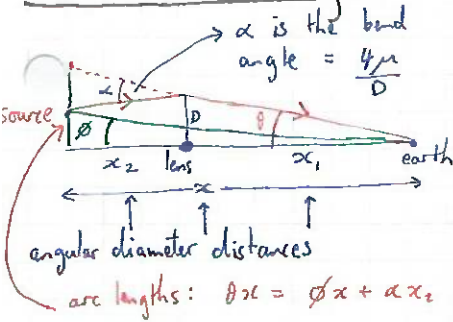 α is the bend
angle = 4μ
D
α
source
ϕ
D
θ
x₂
lens
x₁
earth
x
angular diameter distances
arc lengths: θx = ϕx + αx₂